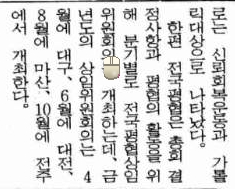 로는 신뢰회복운동과 가볼
릭대상으로 나타났다.
한편 전국평협은 총회 결
정사항과 평협의 활동을 위
해 분기별로 전국평협상임
위원회의 개최하는데, 금
년도의 상임위원회의는 4
월에 대구, 6월에 대전,
8월에 마산, 10월에 전주
에서 개최한다.